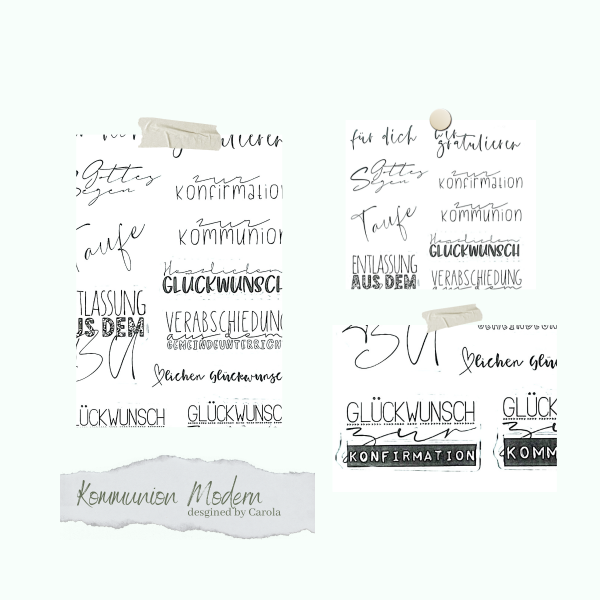 Gottes
Segen
zur
konfirmation
Taufe
zur
kommunion
Herzlichen
GLÜCKWUNSCH
AUS DEM
VERABSCHIEDUNG
aus dem
GEMEINDEUNTERRICHT
lichen Glückwunsc
GLÜCKWUNSC
für dich
wir
gratulieren
Gottes
Segen
zur
konfirmation
Taufe
zur
kommunion
Herzlichen
GLÜCKWUNSCH
ENTLASSUNG
AUS DEM
VERABSCHIEDUNG
lichen Glück
GLÜCKWUNSCH
zur
KONFIRMATION
GLÜCK
KOMM
Kommunion Modern
desgined by Carola